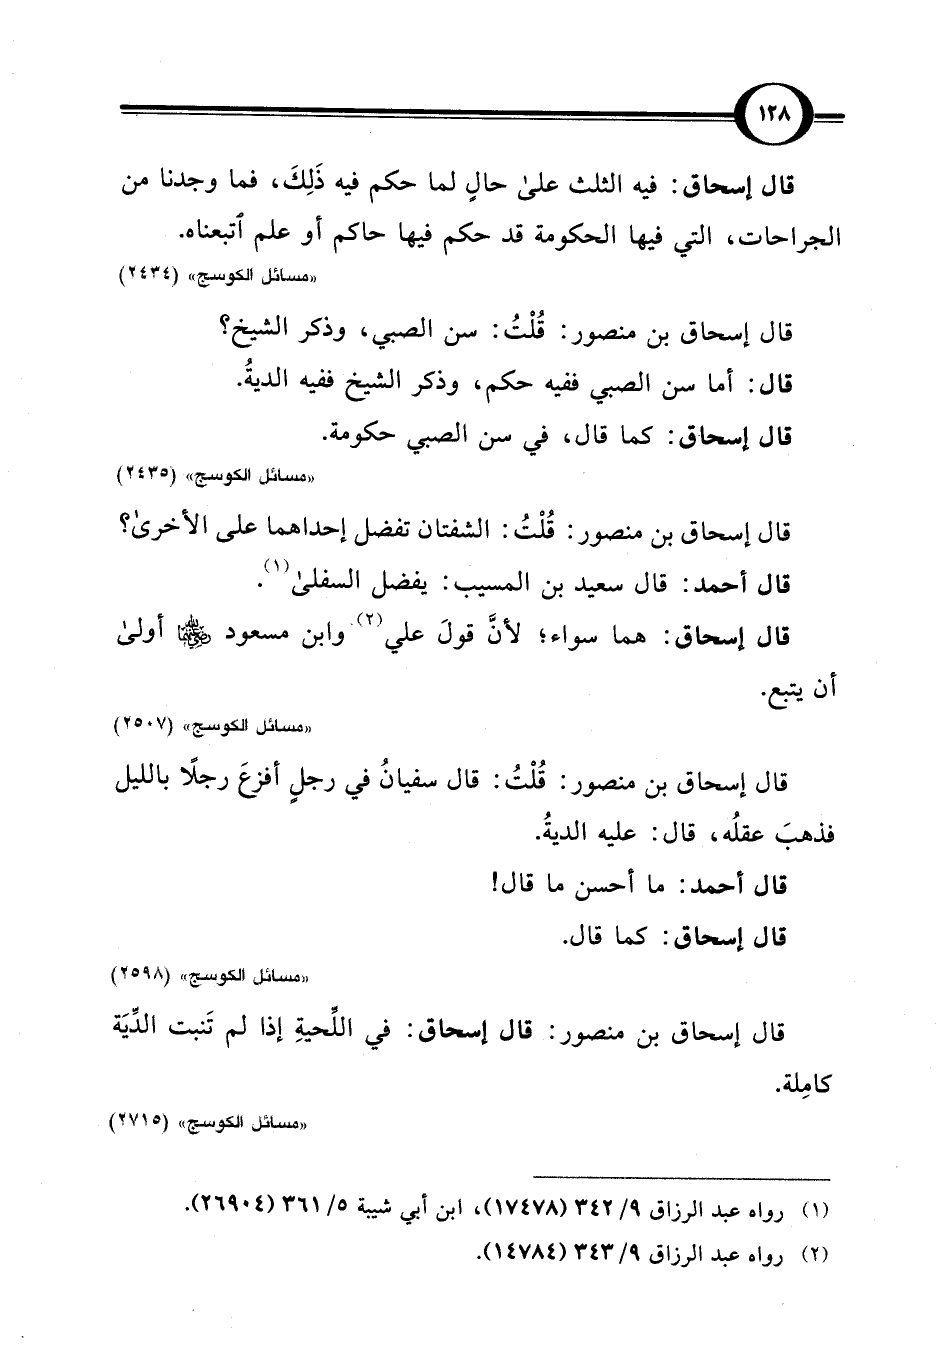 ١٢٨
قال إسحاق: فيه الثلث علىٰ حالٍ لما حكم فيه ذَلِكَ، فما وجدنا من
الجراحات، التي فيها الحكومة قد حكم فيها حاكم أو علم ٱتبعناه.
«مسائل الكوسج» (٢٤٣٤)
قال إسحاق بن منصور: قُلْتُ: سن الصبي، وذكر الشيخ؟
قال: أما سن الصبي ففيه حكم، وذكر الشيخ ففيه الديةُ.
قال إسحاق: كما قال، في سن الصبي حكومة.
«مسائل الكوسج» (٢٤٣٥)
قال إسحاق بن منصور: قُلْتُ: الشفتان تفضل إحداهما على الأخرىٰ؟
قال أحمد: قال سعيد بن المسيب: يفضل السفلىٰ(١).
قال إسحاق: هما سواء؛ لأنَّ قولَ علي(٢) وابن مسعود رضي الله عنهما أولىٰ
أن يتبع.
«مسائل الكوسج» (٢٥٠٧)
قال إسحاق بن منصور: قُلْتُ: قال سفيانُ في رجلٍ أفزعَ رجلًا بالليل
فذهبَ عقلُه، قال: عليه الديةُ.
قال أحمد: ما أحسن ما قال!
قال إسحاق: كما قال.
«مسائل الكوسج» (٢٥٩٨)
قال إسحاق بن منصور: قال إسحاق: في اللِّحيةِ إذا لم تَنبت الدِّيَة
كامِلة.
«مسائل الكوسج» (٢٧١٥)
(١) رواه عبد الرزاق ٩/ ٣٤٢ (١٧٤٧٨)، ابن أبي شيبة ٥/ ٣٦١ (٢٦٩٠٤).
(٢) رواه عبد الرزاق ٩/ ٣٤٣ (١٤٧٨٤).